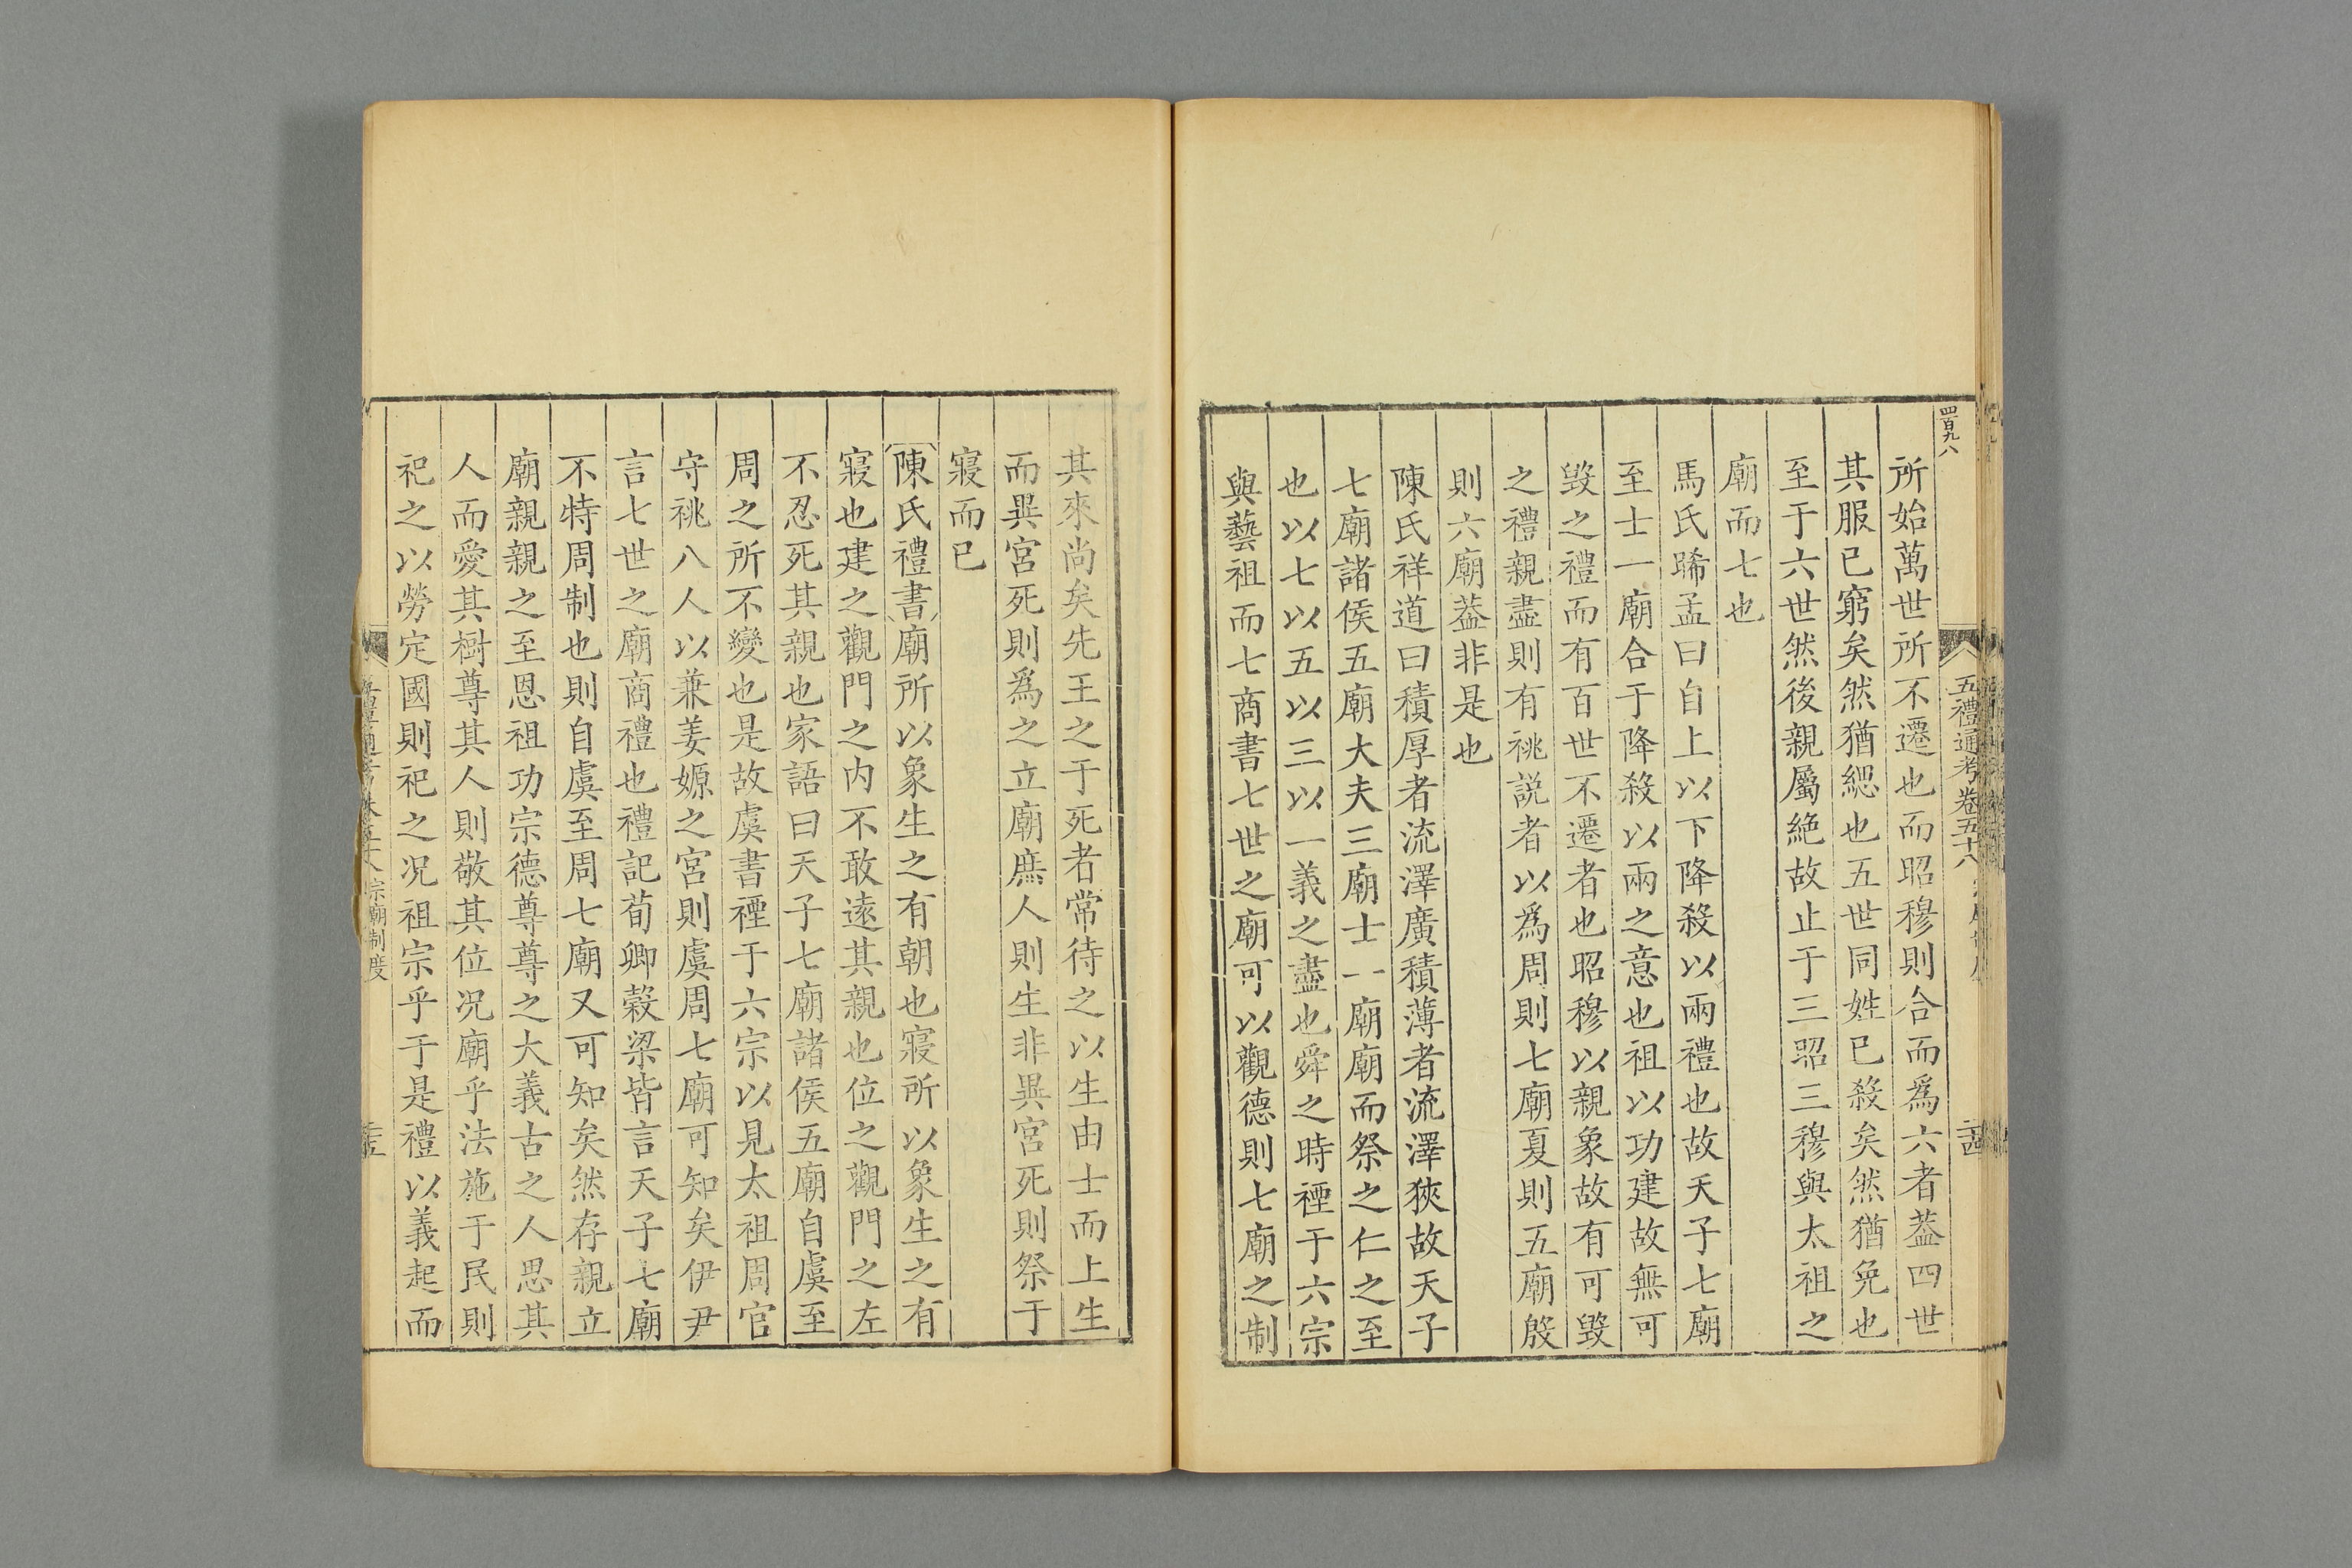 四百九八
五禮通考卷五十八
所始萬世所不遷也而昭穆則合而爲六者葢四世
其服已窮矣然猶緦也五世同姓已殺矣然猶免也
至于六世然後親屬絶故止于三昭三穆與太祖之
廟而七也
馬氏睎孟曰自上以下降殺以兩禮也故天子七廟
至士一廟合于降殺以兩之意也祖以功建故無可
毀之禮而有百世不遷者也昭穆以親象故有可毀
之禮親盡則有祧説者以爲周則七廟夏則五廟殷
則六廟葢非是也
陳氏祥道曰積厚者流澤廣積薄者流澤狹故天子
七廟諸侯五廟大夫三廟士一廟廟而祭之仁之至
也以七以五以三以一義之盡也舜之時禋于六宗
與藝祖而七商書七世之廟可以觀德則七廟之制
其來尚矣先王之于死者常待之以生由士而上生
而異宮死則爲之立廟庶人則生非異宮死則祭于
寢而已
陳氏禮書廟所以象生之有朝也寢所以象生之有
寢也建之觀門之内不敢遠其親也位之觀門之左
不忍死其親也家語曰天子七廟諸侯五廟自虞至
周之所不變也是故虞書禋于六宗以見太祖周官
守祧八人以兼姜嫄之宮則虞周七廟可知矣伊尹
言七世之廟商禮也禮記荀卿穀梁皆言天子七廟
不特周制也則自虞至周七廟又可知矣然存親立
廟親親之至恩祖功宗德尊尊之大義古之人思其
人而愛其樹尊其人則敬其位况廟乎法施于民則
祀之以勞定國則祀之况祖宗乎于是禮以義起而
宗廟制度